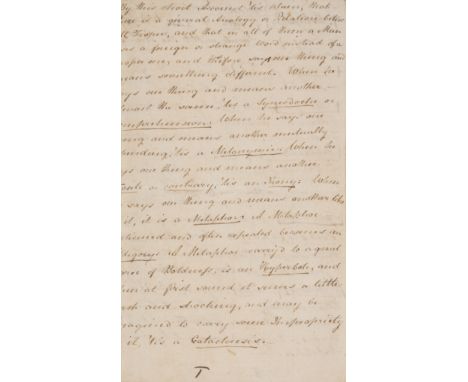 By this short Account 'tis plain, that
is a general Analogy or Relation between
all Tropes, and that in all of them a Man
uses a foreign or strange word instead of a
proper one, and therefore says one thing and
means something different. When he
says one thing and means another
almost the same, 'tis a Synecdoche or
Comprehension. When he says one
thing and means another mutually
depending, 'tis a Metonymie. When he
says one thing and means another
opposite or contrary, 'tis an Irony. When
he says one thing and means another like
to it, it is a Metaphor. A Metaphor
continued and often repeated becomes an
Allegory. A Metaphor carry'd to a great
degree of Boldness, is an Hyperbole, and
when at first sound it seems a little
harsh and shocking, and may be
imagined to carry some Impropriety
in it, 'tis a Catachresis.
T